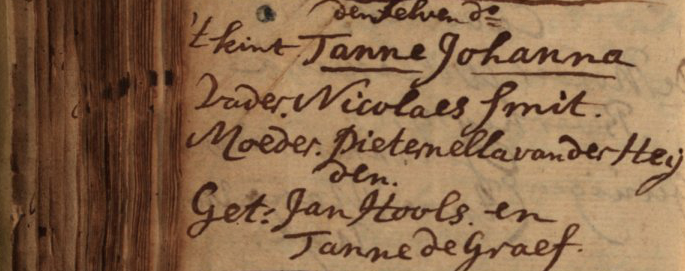 den selven do
't kint Tanne Johanna
Vader. Nicolaes Smit.
Moeder. Pieternella van der Hey
den.
Get: Jan Hools. en
Tanne de Graef.